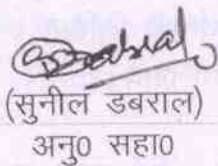 (सुनील डबराल)
अनु0 सहा0